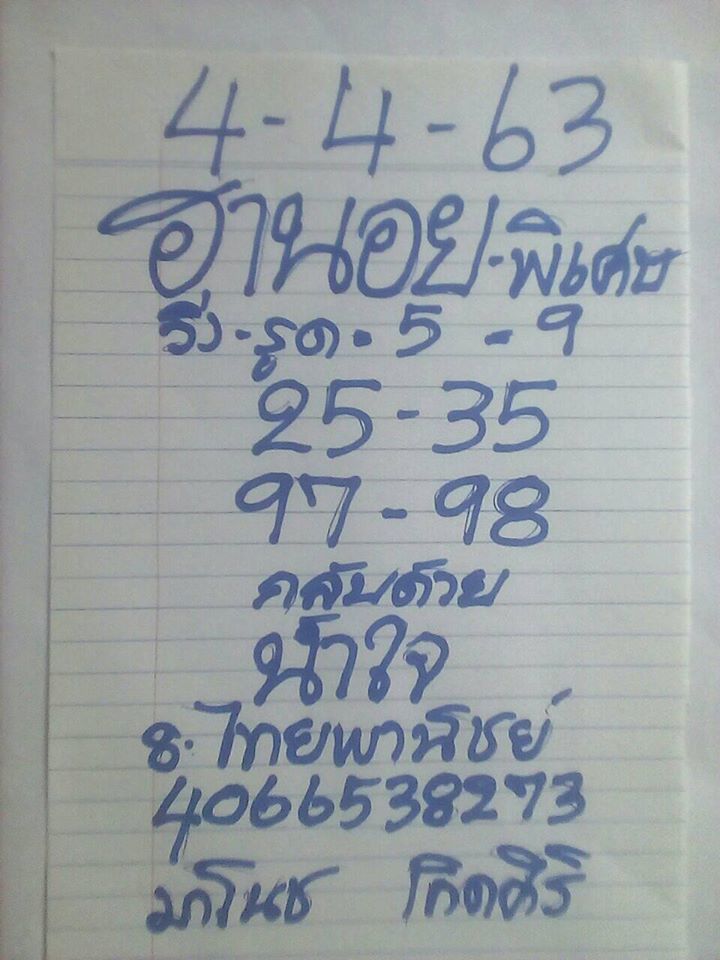 4-4-63
ฮานอย.พิเศษ
วิ่ง-รูด-5-9
25-35
97-98
กลับด้วย
น้ำใจ
ธ.ไทยพานิชย์
4066538273
มาโนช เกิดศิริ